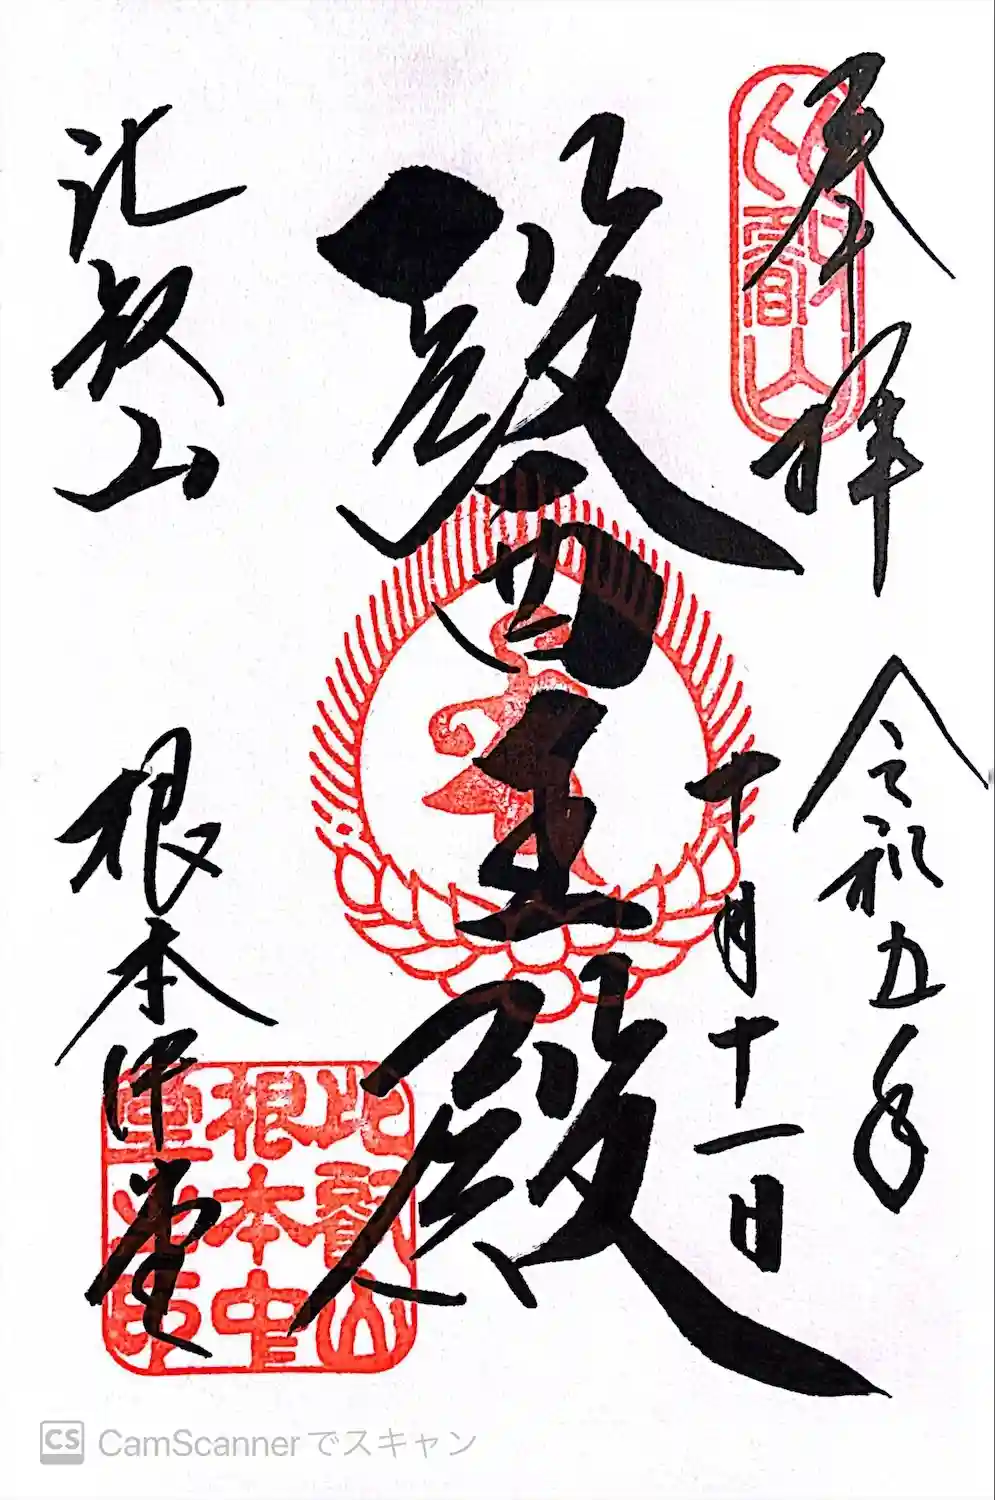 奉拝
令和五年
十月十一日
比叡山
醫王殿
比叡山
根本中堂
比叡山
根本中
堂之印
CS CamScannerでスキャン